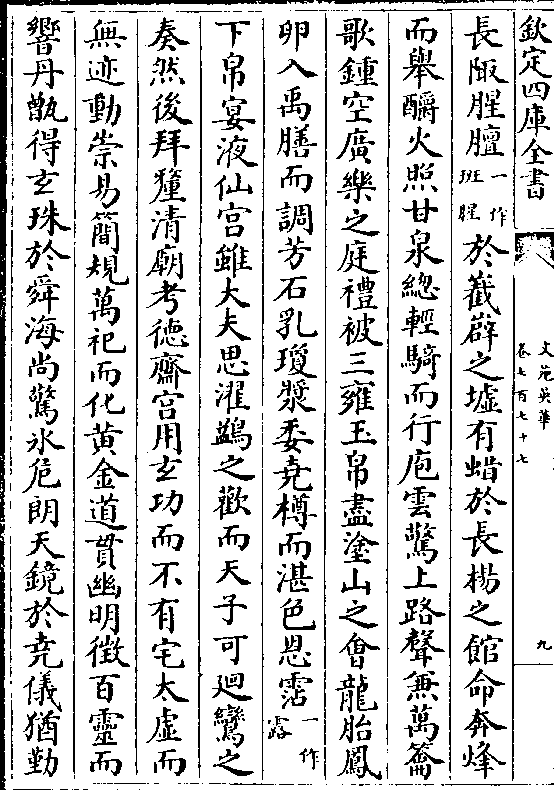 欽定四庫全書
文苑英華
卷七百七十七
九
長陬腥膻一作班腥於嶻嶭之墟有蜡於長楊之館命奔烽
而舉釂火照甘泉總輕騎而行庖雲驚上路聲無萬籥
歌鍾空廣樂之庭禮被三雍玉帛盡塗山之會龍胎鳳
卵入禹膳而調芳石乳瓊漿委堯樽而湛色恩霑一作露
下帛宴液仙宮雖大夫思濯鷁之歡而天子可廻鸞之
奏然後拜釐清廟考德齋宮用玄功而不有宅太虛而
無迹動崇易簡規萬祀而化黄金道貫幽明徵百靈而
響丹甑得玄珠於舜海尚驚氷危朗天鏡於堯儀猶勤